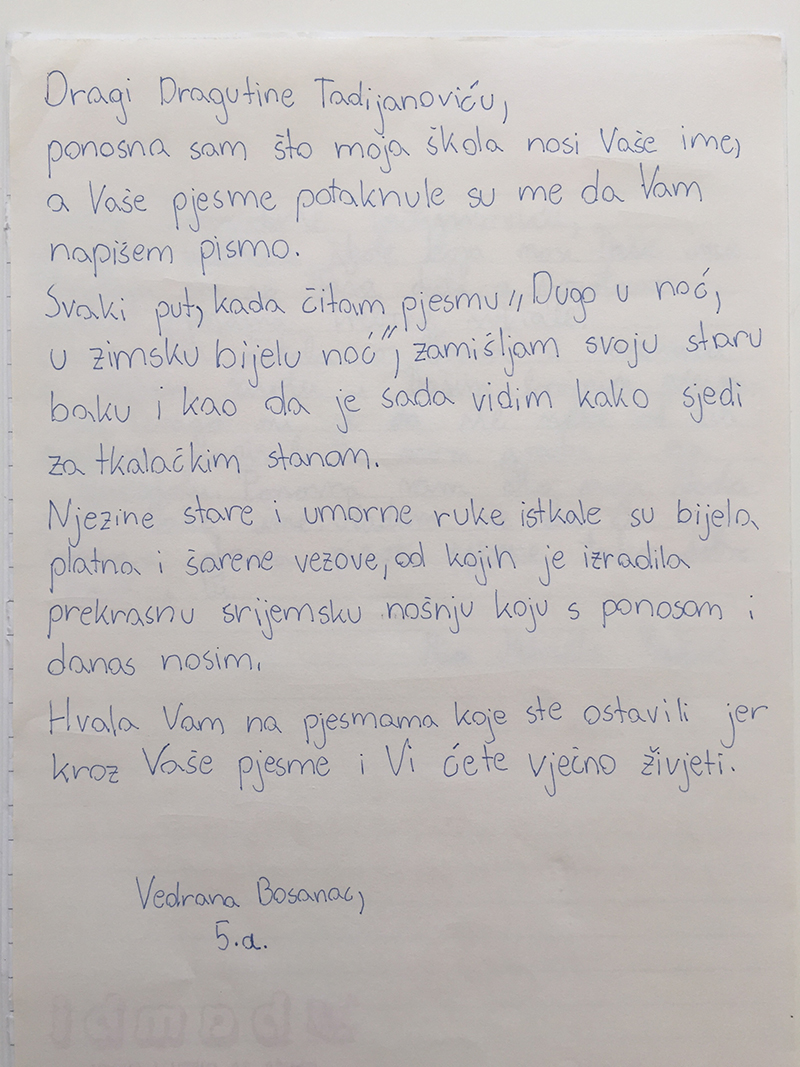 Dragi Dragutine Tadijanoviću,
ponosna sam što moja škola nosi Vaše ime,
a Vaše pjesme potaknule su me da Vam
napišem pismo.
Svaki put, kada čitam pjesmu „Dugo u noć,
u zimsku bijelu noć”, zamišljam svoju staru
baku i kao da je sada vidim kako sjedi
za tkalačkim stanom.
Njezine stare i umorne ruke istkale su bijela
platna i šarene vezove, od kojih je izradila
prekrasnu srijemsku nošnju koju s ponosom i
danas nosim.
Hvala Vam na pjesmama koje ste ostavili jer
kroz Vaše pjesme i Vi ćete vječno živjeti.
Vedrana Bosanac,
5.a.